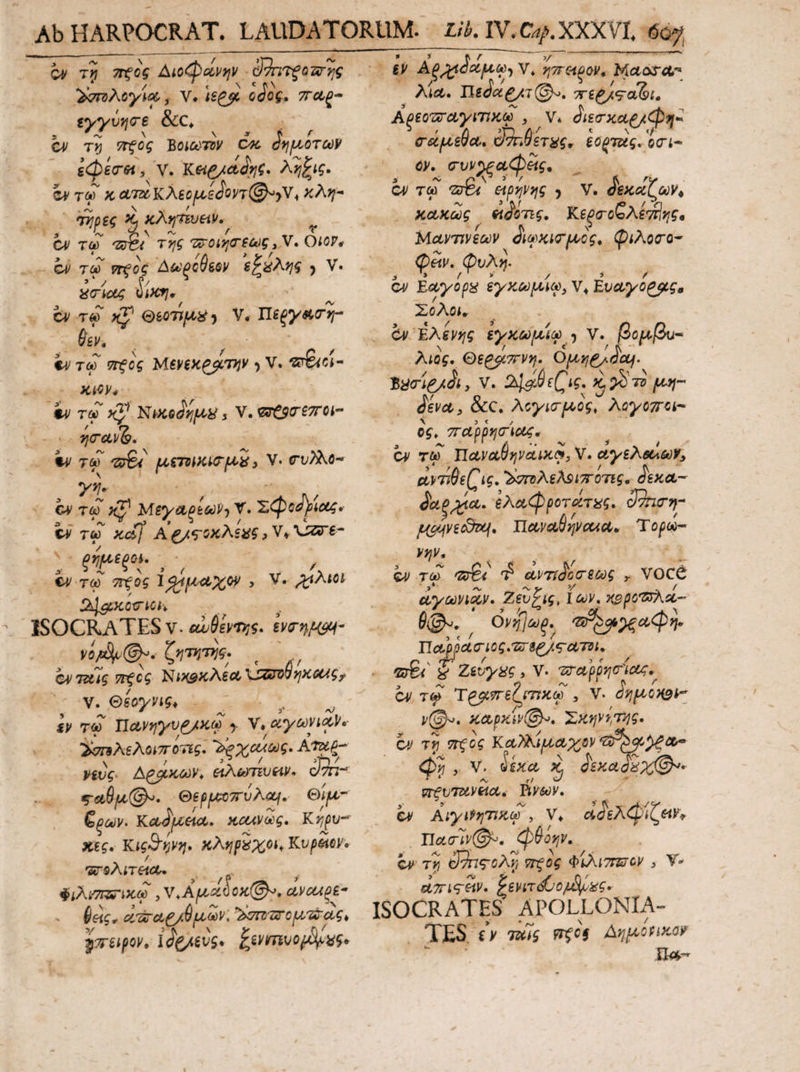 Ab HARPOCRAT. LAUDATORUM. Lib. IV. Cap. XXXVI. 607
ἐν τῇ πρὸς Διοφάνην ἐπιτροπῆς
ἀπολογίᾳ, V. ἱερὰ ὁδός. παρ-
εγγύησε &c.
ἐν τῇ πρὸς Βοιωτὸν ἐκ δημοτων
ἐφέσει, V. Κειριάδης. λῆξις.
ἐν τῷ κατὰ Κλεομέδοντ(Θ), V. κλη-
τῆρες καὶ κλητεύειν.
ἐν τῷ περὶ τῆς ποιήσεως, V. Οιον.
ἐν τῷ πρὸς Δωρόθεον ἐξούλης, V.
οὐσίας δίκη.
ἐν τῷ κατὰ Θεοτίμου, V. Περγασῆ-
θεν.
ἐν τῷ πρὸς Μενεκράτην, V. περιοί-
κιον.
ἐν τῷ κατὰ Νικοδήμου, V. προσεποι-
ήσαντο.
ἐν τῷ περὶ μετοικισμοῦ, V. συλλο-
γή.
ἐν τῷ κατὰ Μεγαρέων, V. Σφοδρίας.
ἐν τῷ κατ' Ἀριστοκλέους, V. ὑπε-
ρήμεροι.
ἐν τῷ πρὸς Ἰσχίμαχον, V. χίλιοι
διακόσιοι.
ISOCRATES V. αὐθέντης. ἐνσημαι-
νόμενος. ζητητής.
ἐν ταῖς πρὸς Νικοκλέα ὑποθήκαις,
V. Θέογνις.
ἐν τῷ Πανηγυρικῷ, V. ἀγωνιᾶν.
ἀπολελοιπότες. ἀρχαίως. Αταρ-
νεύς. Δρακων. εἱλωτεύειν. ἐπί-
σταθμος. Θερμοπύλαι. Θίμ-
βρων. Καδμεία. καινῶς. Κήρυ-
κες. Κισθήνη. κληροῦχοι. Κυρεῖον.
πολιτεία.
Φιλιππικῷ, V. Ἀμάδοκος. ἀναιρε-
θείς. ἀπαριθμῶν. ἀποπομπάς.
ἤπειρον. Ἰδριεύς. ξενιτευομένους.
ἐν Ἀρχιδάμῳ, V. ἤπειρον. Μαασα-
λία. Πεδάριτος. περίσταθι.
Ἀρεοπαγιτικῷ, V. διεσκαριφη-
σάμεθα. ἐπιθέτους. ἑορτάς. ὅσι-
ον. συγγραφεῖς.
ἐν τῷ περὶ εἰρήνης, V. δεκάζων.
κακῶς εἰδότες. Κερσοβλέπτης.
Μαντινέων διοικισμός. φιλοσο-
φεῖν. φυλή.
ἐν Ἐαγόρου ἐγκωμίῳ, V. Ἐυαγόρας.
Σόλοι.
ἐν Ἑλένης ἐγκωμίῳ, V. βομβυ-
λιός. Θεράπνη. Ὁμηρίδαι.
Βουσίριδι, V. διάθεσις. καὶ γὰρ τὸ μη-
δένα, &c. λογισμός. λογοποι-
ός. παῤῥησίας.
ἐν τῷ Παναθηναικῷ, V. ἀγελαίων,
ἀντίθεσις. ἀπολελοιπότες. δεκα-
δαρχία. ἐλαφροτάτους. ἐπιση-
μαίνεσθαι. Παναθήναια. Τορώ-
νην.
ἐν τῷ περὶ τῆς ἀντιδόσεως, voce
ἀγωνιᾶν. Ζεῦξις. Ἴων. κεροπλά-
θος. Ὀνήτωρ. παραγραφή.
Παῤῥάσιος. περίστατοι.
περὶ τοῦ Ζεύγους, V. παῤῥησίας.
ἐν τῷ Τραπεζιτικῷ, V. δημόκοι-
νος. καρκίνος. Σκηνίτης.
ἐν τῇ πρὸς Καλλίμαχον παραγρα-
φῇ, V. δέκα καὶ δεκαδοῦχος.
πρυτανεῖα. Ῥίνων.
ἐν Αἰγινητικῷ, V. ἀδελφίζειν.
Πασῖνος. φθόην.
ἐν τῇ ἐπιστολῇ πρὸς Φίλιππον, V.
ἀπιστεῖν. ξενιτευομένους.
ISOCRATES APOLLONIA-
TES ἐν ταῖς πρὸς Δημόνικον
Πα-